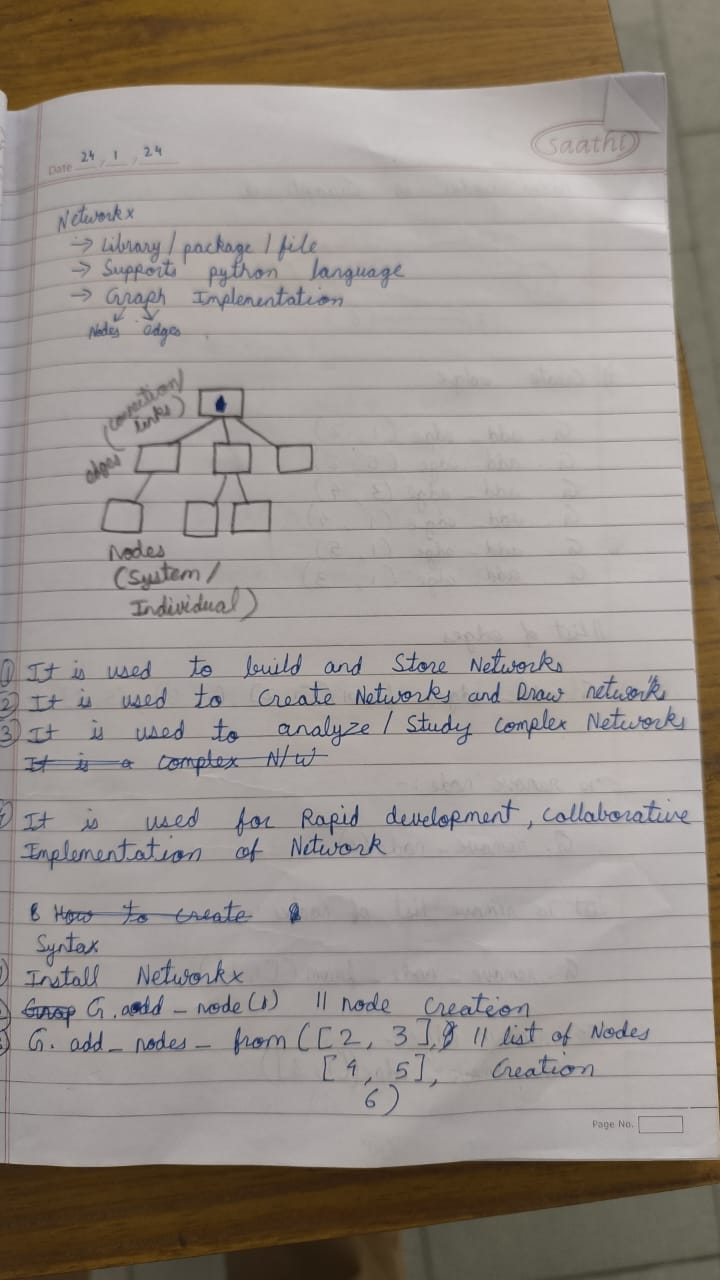 saathi
Date 24, 1, 24
Networkx
→ Library / package / file
→ Supports python language
→ Graph Implementation
Nodes edges
(connection/
links)
edges
Nodes
(System /
Individual)
① It is used to build and Store Networks
② It is used to Create Networks and Draw networks
③ It is used to analyze / Study complex Networks
It is a complex N/W
It is used for Rapid development, collaborative
Implementation of Network
How to create
Syntax
Install Networkx
G. add _ node (1) || node creation
G. add _ nodes _ from ([2, 3], || list of Nodes
[4, 5], Creation
6)
Page No.